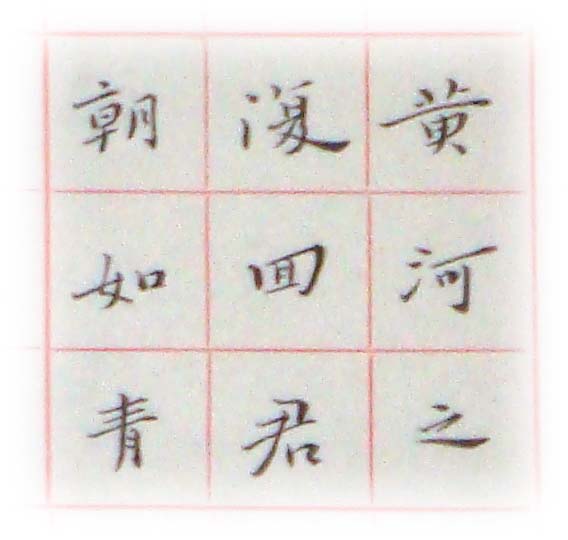 黄河之
復回君
朝如青